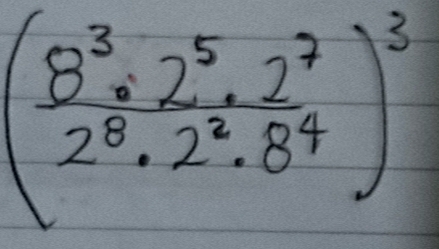 (8³ · 2⁵ · 2⁷
2⁸ · 2² · 8⁴)³